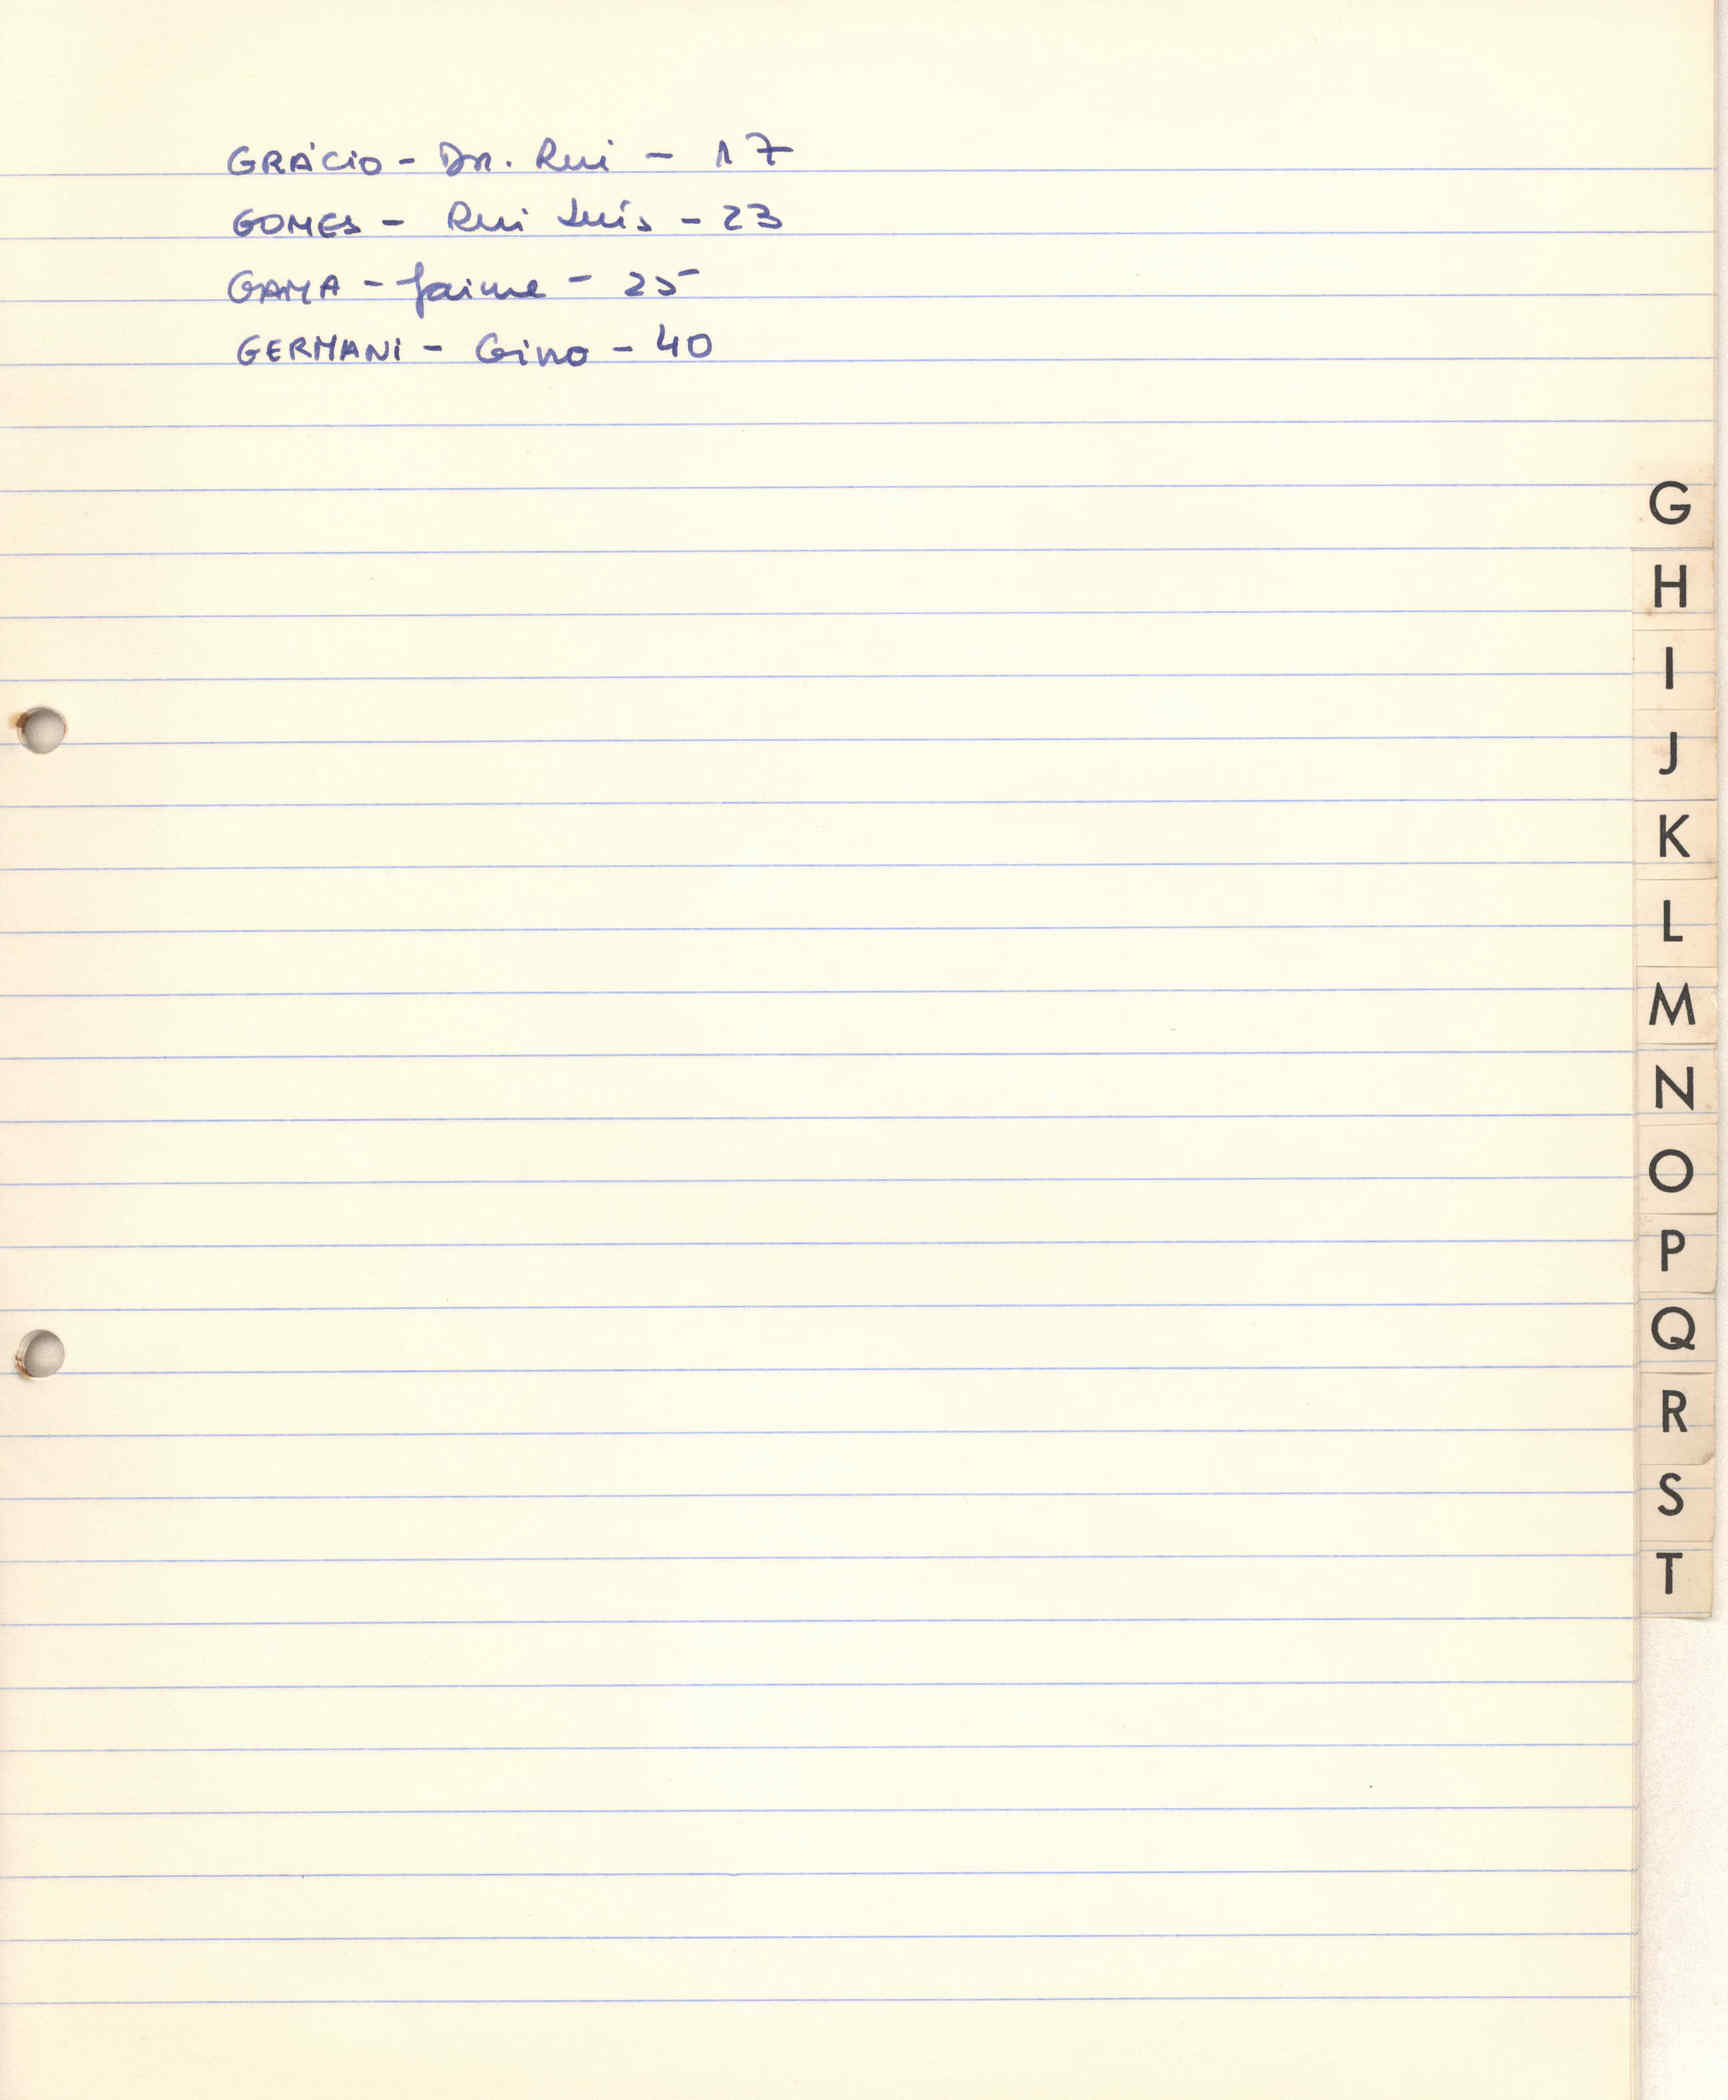 GRÁCIO - Dr. Rui - 17
GOMES - Rui Luís - 23
GAMA - Jaime - 25
GERMANI - Gino - 40
G
H
I
J
K
L
M
N
O
P
Q
R
S
T